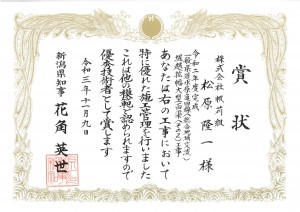 賞状
株式会社頸城組
松原隆一様
令和二年度完成
あなたは右の工事において
特に優れた施工管理を行いました
これは他の模範と認められますので
優秀技術者として賞します
令和三年十一月九日
新潟県知事 花角英世